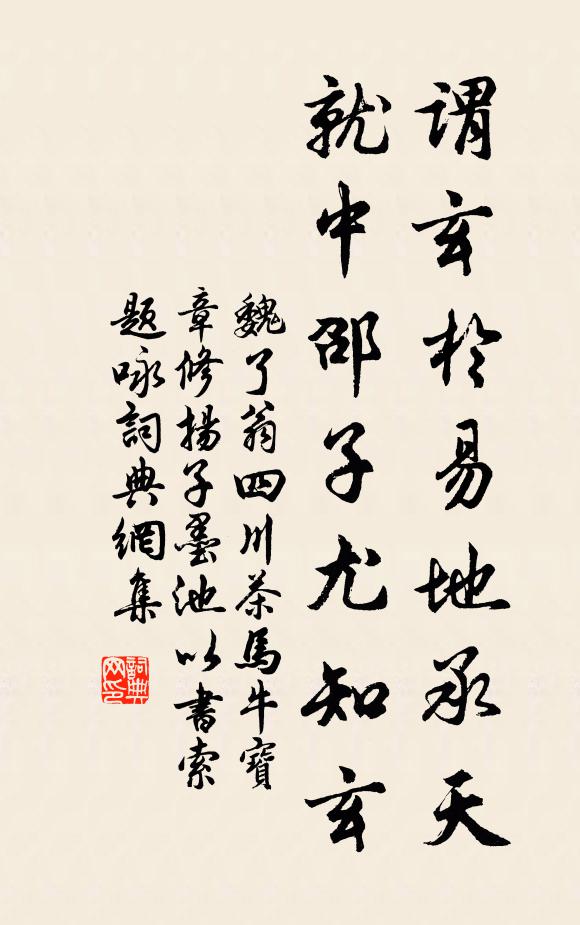 謂玄於易地承天
就中邵子尤知玄
魏了翁四川茶馬牛寶
章修揚子墨池以書索
題咏詞典網集
詞典
网印